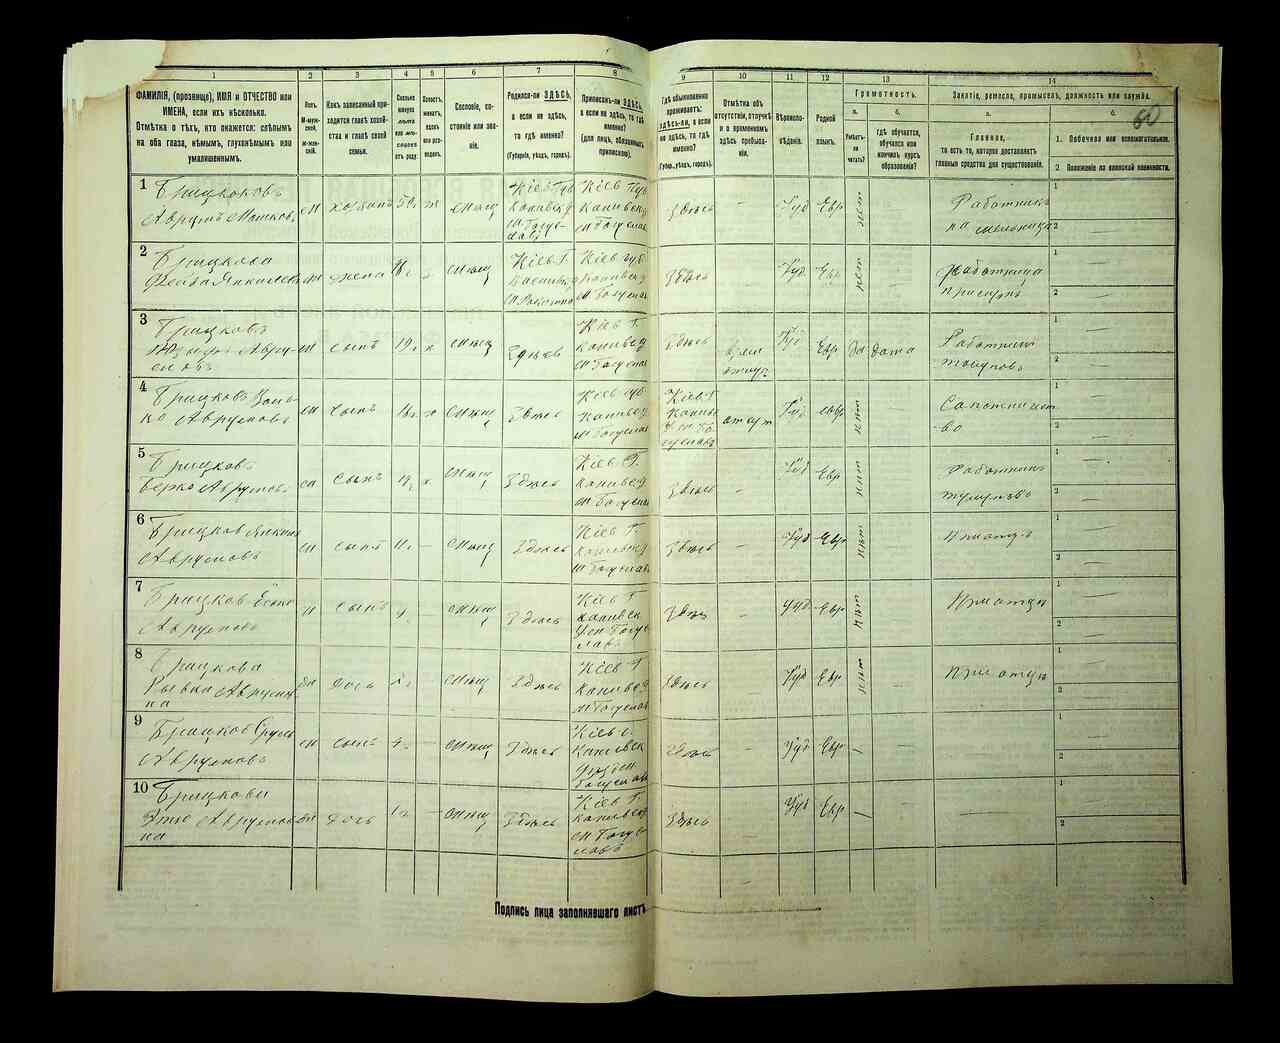 1
2
3
4
5
6
7
8
9
10
11
12
13
14
ФАМИЛІЯ, (прозвище), ИМЯ и ОТЧЕСТВО или
ИМЕНА, если ихъ нѣсколько.
Отмѣтка о тѣхъ, кто окажется: слѣпымъ
на оба глаза, нѣмымъ, глухонѣмымъ или
умалишеннымъ.
Полъ.
М-муж-
ской,
Ж-жен-
скій.
Какъ записанный при-
ходится главѣ хозяй-
ства и главѣ своей
семьи.
Сколько
минуло
лѣтъ
или мѣ-
сяцевъ
отъ роду.
Холостъ,
женатъ,
вдовъ
или раз-
веденъ.
Сословіе, со-
стояніе или зва-
ніе.
Родился-ли ЗДѢСЬ,
а если не здѣсь,
то гдѣ именно?
(Губернія, уѣздъ, городъ).
Приписанъ-ли ЗДѢСЬ,
а если не здѣсь, то гдѣ
именно?
(для лицъ, обязанныхъ
припискою).
Гдѣ обыкновенно
проживаетъ:
здѣсь-ли, а если
не здѣсь, то гдѣ
именно?
(Губер., уѣздъ, городъ).
Отмѣтка объ
отсутствіи, отлучкѣ
и о временномъ
здѣсь пребыва-
ніи.
Вѣроиспо-
вѣданіе.
Родной
языкъ.
Грамотность.
а.
Умѣетъ-
ли чи-
тать?
б.
гдѣ обучается,
обучался или
кончилъ курсъ
образованія?
Занятіе, ремесло, промыселъ, должность или служба.
а.
Главное,
то есть то, которое доставляетъ
главныя средства для существованія.
б.
60
1. Побочное или вспомогательное.
2. Положеніе по воинской повинности.
1
Брицкоковъ
Аврумъ Мошков.
м
хозяинъ
50 г.
ж
мѣщ
Кіев Губ
Каневск у
м Богу-
славѣ
Кіев Губ
Каневск
м Богуслав
Здѣсь
–
Іуд
Евр
нѣт
–
Работникъ
на мельницѣ
1
2
2
Брицкова
ж
жена
мѣщ
Кіев Г.
Кіев губ
Каневск
м Богуслав
Здѣсь
–
Іуд
Евр
нѣт
–
Работница
1
2
3
Брицковъ
м
сынъ
19 г.
х
мѣщ
Здѣсь
Кіев Г.
Каневск
м Богуслав
Здѣсь
Іуд
Евр
да
дома
Работникъ
1
2
4
Брицков
Аврумовъ
м
сынъ
х
мѣщ
Здѣсь
Кіев губ
Каневск
м Богуслав
Кіев Г
Канев
у м Бо
гуславъ
отсут
Іуд
Евр
нѣт
–
Сапожничест
во
1
2
5
Брицков
Берко Аврумов
м
сынъ
х
мѣщ
Здѣсь
Кіев Г.
Каневск
м Богуслав
Здѣсь
–
Іуд
Евр
нѣт
–
Работник
1
2
6
Брицков
Аврумовъ
м
сынъ
11 г.
–
мѣщ
Здѣсь
Кіев Г.
Каневск
м Богуслав
Здѣсь
–
Іуд
Евр
нѣт
–
При отцѣ
1
2
7
Брицков
Аврумовъ
м
сынъ
–
мѣщ
Здѣсь
Кіев Г
Каневск
у м Богу-
славъ
Здѣсь
–
Іуд
Евр
нѣт
–
При отцѣ
1
2
8
Брицкова
Рывка Аврумов
на
дочь
–
мѣщ
Здѣсь
Кіев Г
Каневск
м Богуслав
Здѣсь
–
Іуд
Евр
нѣт
–
При отцѣ
1
2
9
Брицков Сруль
Аврумовъ
м
сынъ
4 г.
–
мѣщ
Здѣсь
Кіев г.
Каневск
уѣзд м
Богуслав
Здѣсь
–
Іуд
Евр
–
1
2
10
Брицкова
Аврумов
на
дочь
1 г
–
мѣщ
Здѣсь
Кіев Г.
Каневск
м Богу-
славъ
Здѣсь
–
Іуд
Евр
–
1
2
Подпись лица заполнявшаго листъ